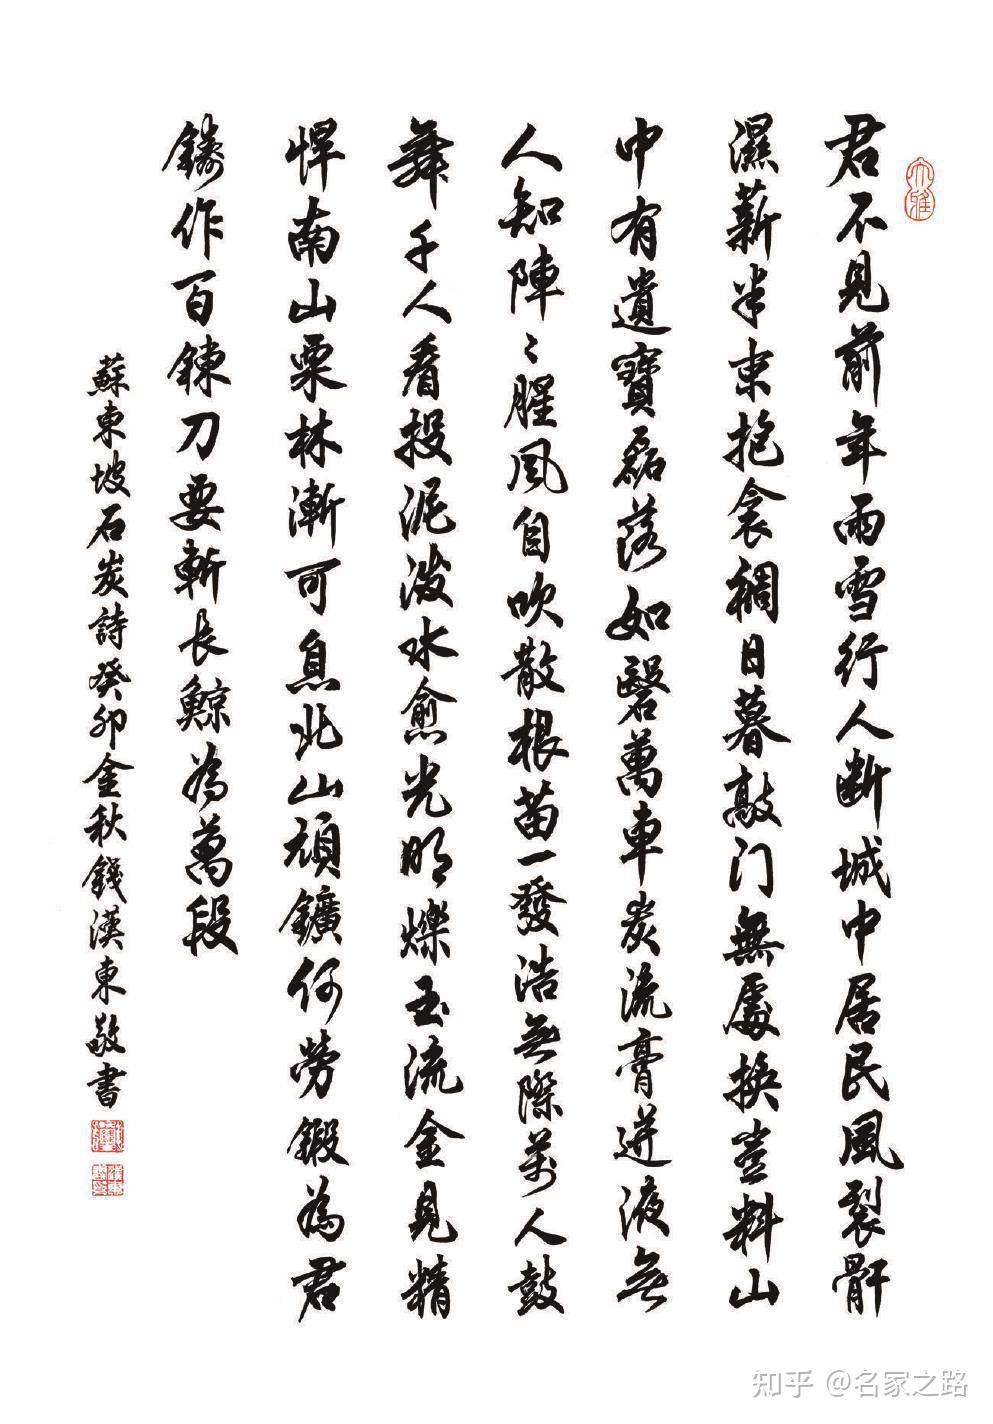 大雅
君不見前年雨雪行人断城中居民風裂骭
濕薪半束抱衾裯日暮敲门無處換豈料山
中有遺寶磊落如磬萬車炭流膏迸液無
人知陣〻腥風自吹散根苗一發浩無際萬人鼓
舞千人看投泥潑水愈光明爍玉流金見精
悍南山栗林漸可息北山頑鑛何勞鍛為君
鑄作百錬刀要斬長鯨為萬段
蘇東坡石炭詩癸卯金秋錢漢東敬書
知乎 @名家之路